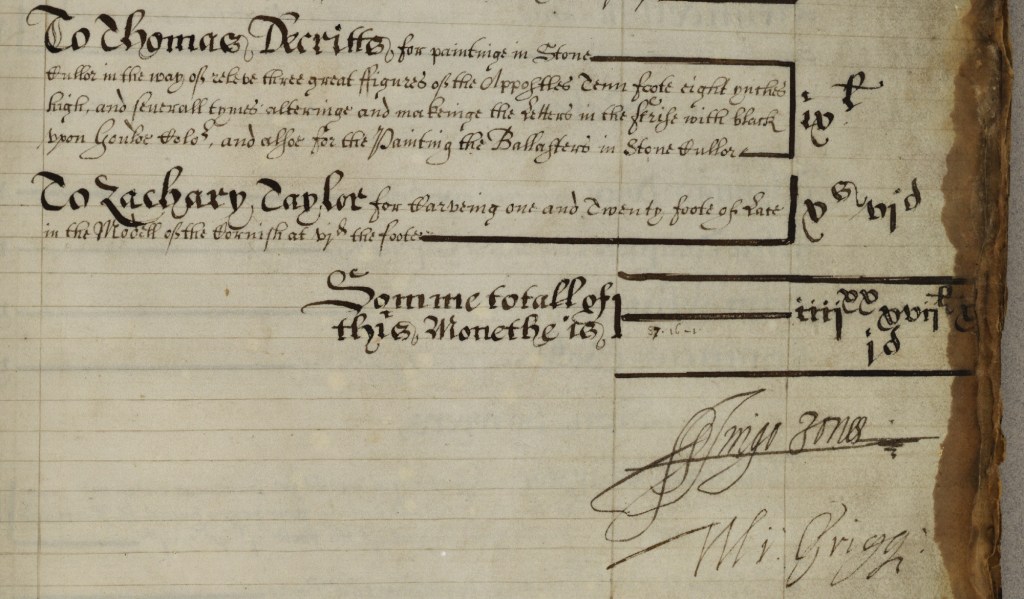 To Thomas Decritts, for paintinge in Stone
Cullor in the way of releve three great ffigures of the Appostles Tenn foote eight ynches
high, and severall tymes alteringe and makeinge the Letters in the ffrise with black
vpon Goulde Color, and alsoe for the Painting the Ballasters in Stone Cullor
ix li
To Zachary Taylor for Carveing one and Twenty foote of Lace
in the Modell of the Cornish at vjd the foote
xs vjd
Somme totall of
this Monethe is
iiijxx xvijli
jd
Inigo Jones
Mi: Grigg: